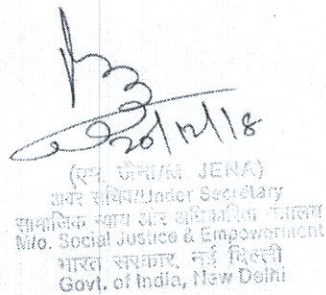 20/12/18
(एम. जेना/M. JENA)
अवर सचिव/Under Secretary
सामाजिक न्याय और अधिकारिता मंत्रालय
M/o. Social Justice & Empowerment
भारत सरकार, नई दिल्ली
Govt. of India, New Delhi